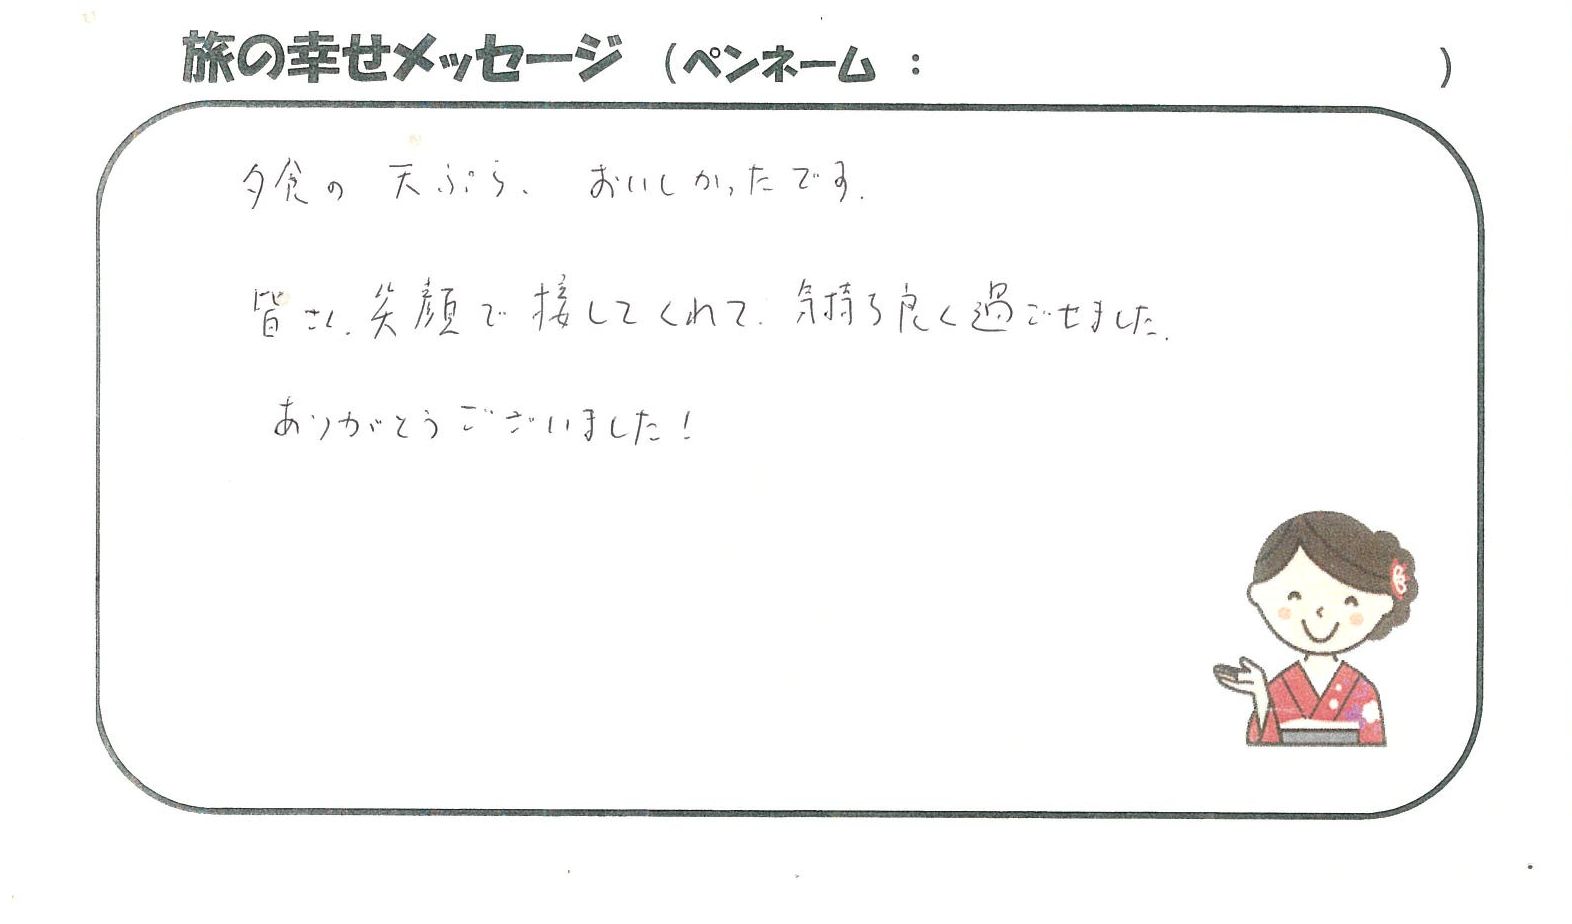 旅の幸せメッセージ （ペンネーム ： ）
夕食の 天ぷら、 おいしかったです。
皆さん、笑顔で接してくれて、気持ち良く過ごせました。
ありがとうございました！